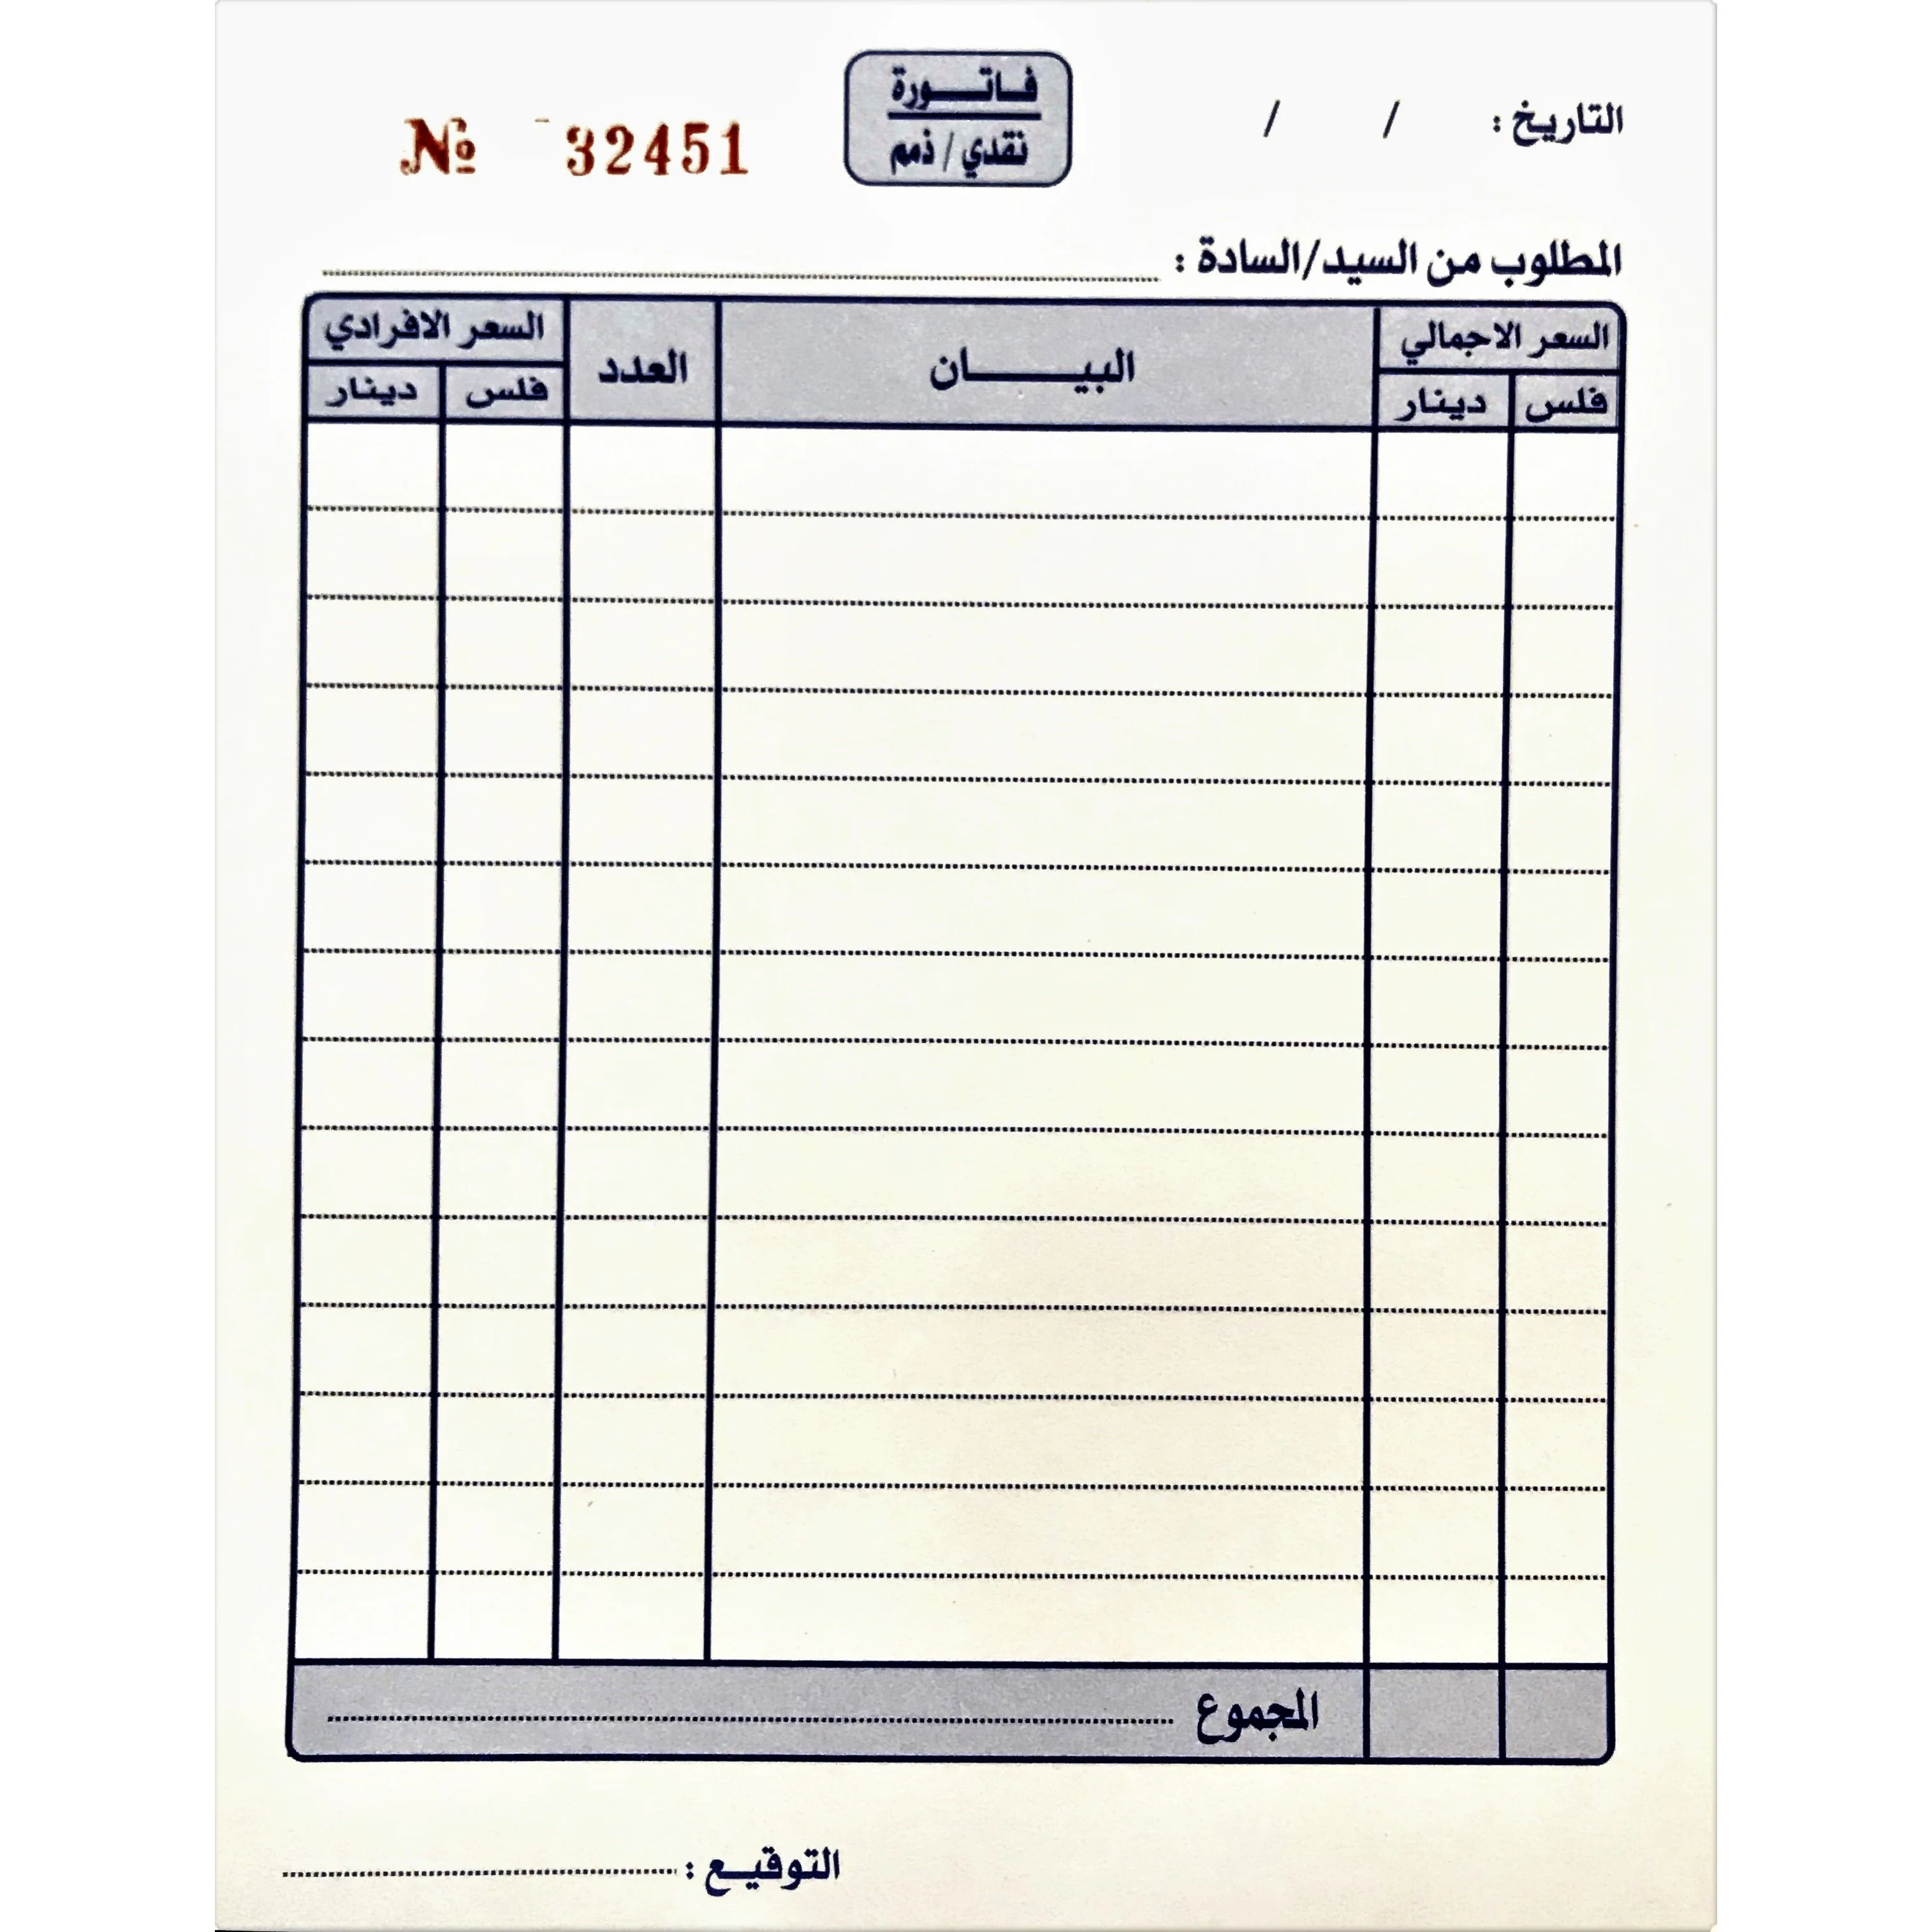 التاريخ : / /
فاتـــورة
نقدي / ذمم
№ 32451
المطلوب من السيد/السادة :
السعر الاجمالي البيـــــان العدد السعر الافرادي
فلس دينار فلس دينار
المجموع
التوقيـع :